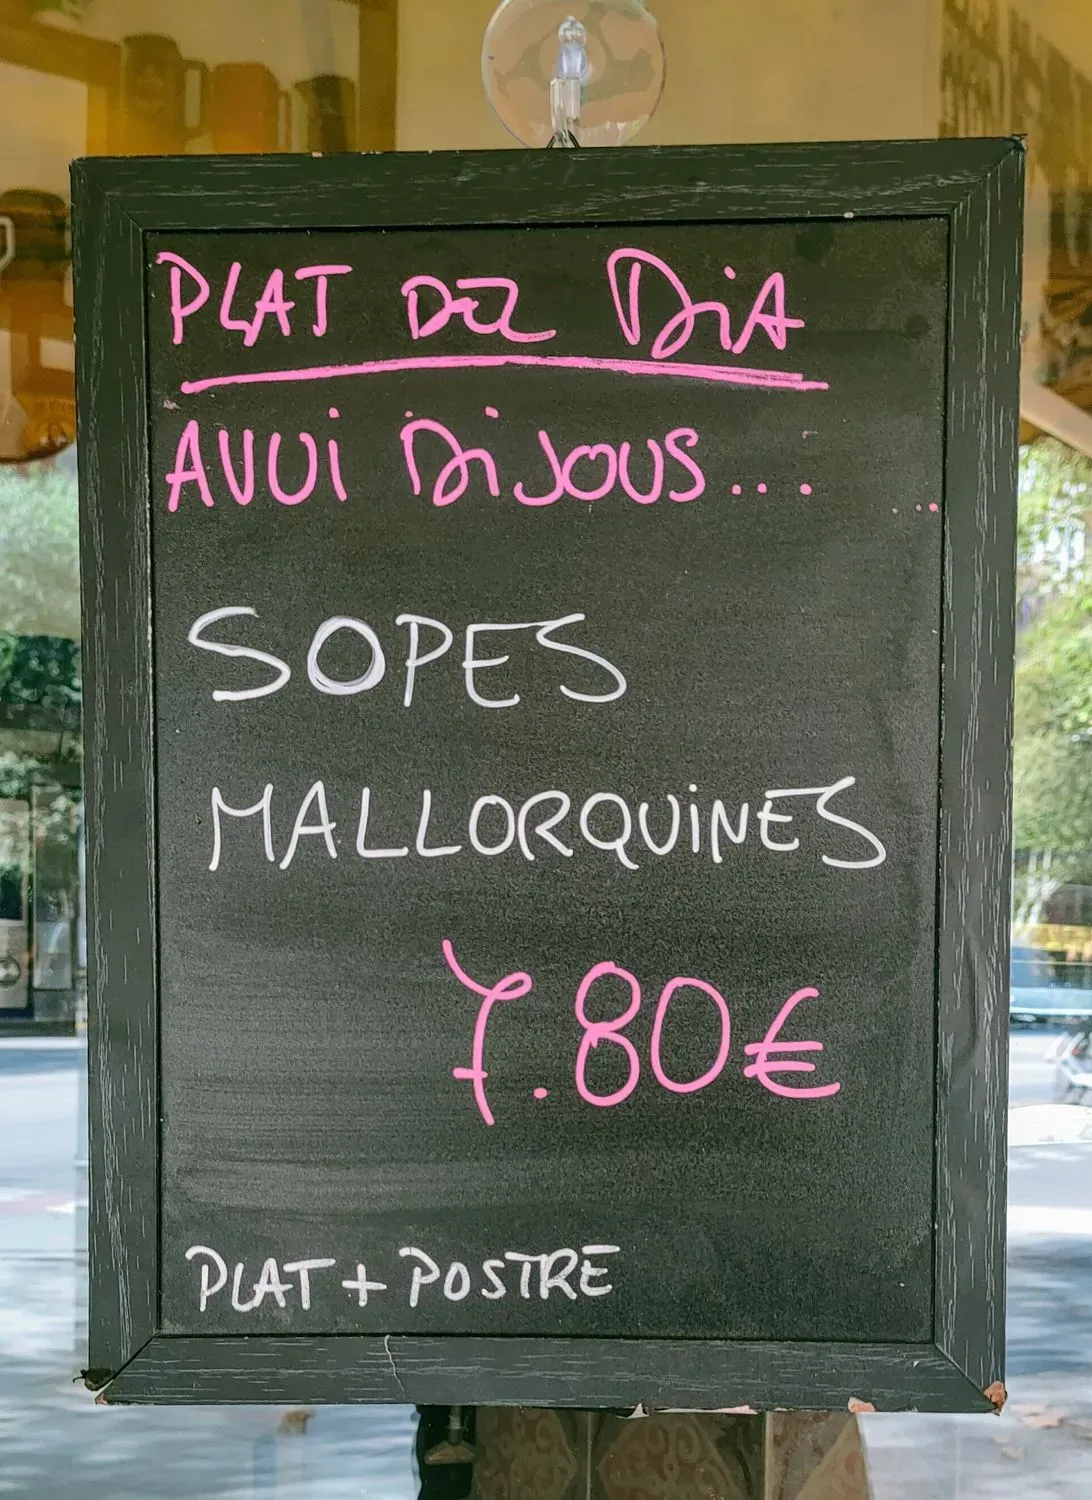 PLAT DEL DiA
AVUi DiJOUS...
SOPES
MALLORQUiNES
7.80€
PLAT + POSTRE